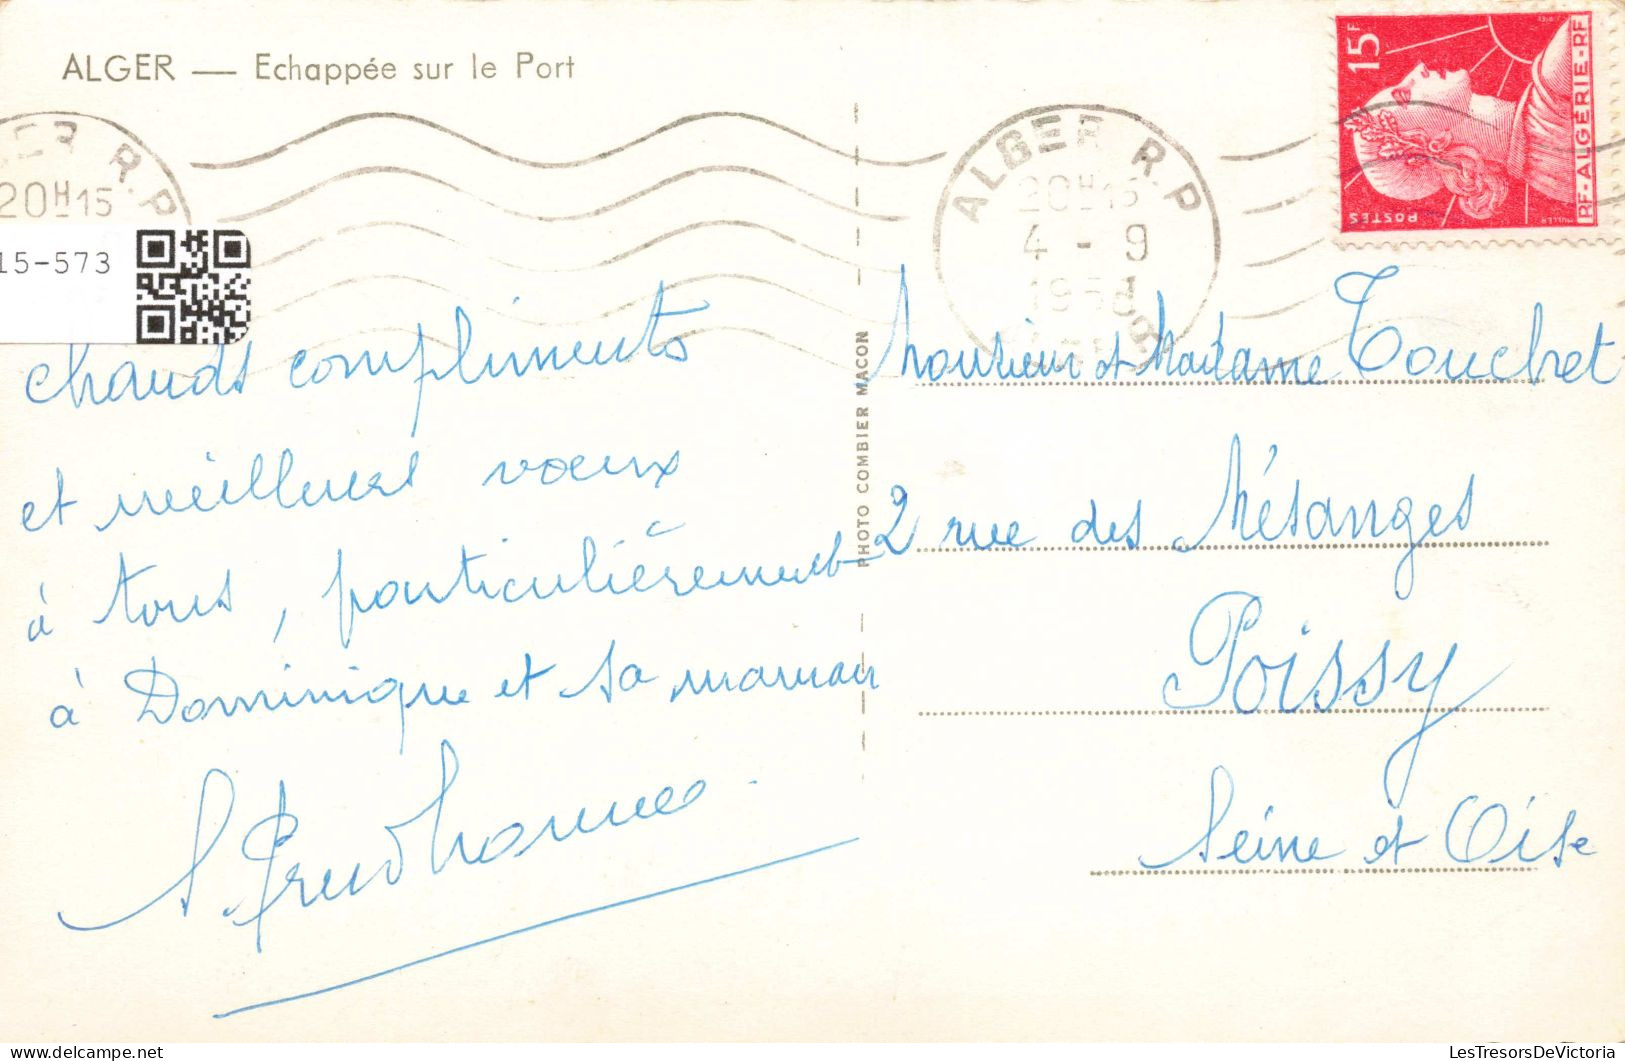 ALGER — Echappée sur le Port
ER R.P
20H15
15-573
chauds compliments
et meilleurs voeux
à tous, particulièrement
à Dominique et sa maman
Prudhomme
PHOTO COMBIER MACON
ALGER R.P
20H15
4 - 9
15F
POSTES
MULLER
RF-ALGÉRIE-RF
Monsieur et Madame Touchet
2 rue des Mésanges
Poissy
Seine et Oise
LesTresorsDeVictoria